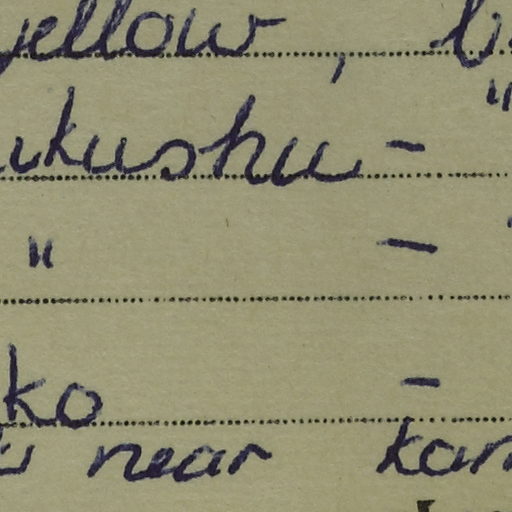 yellow,
ukushu - "
" -
ko -
near kar